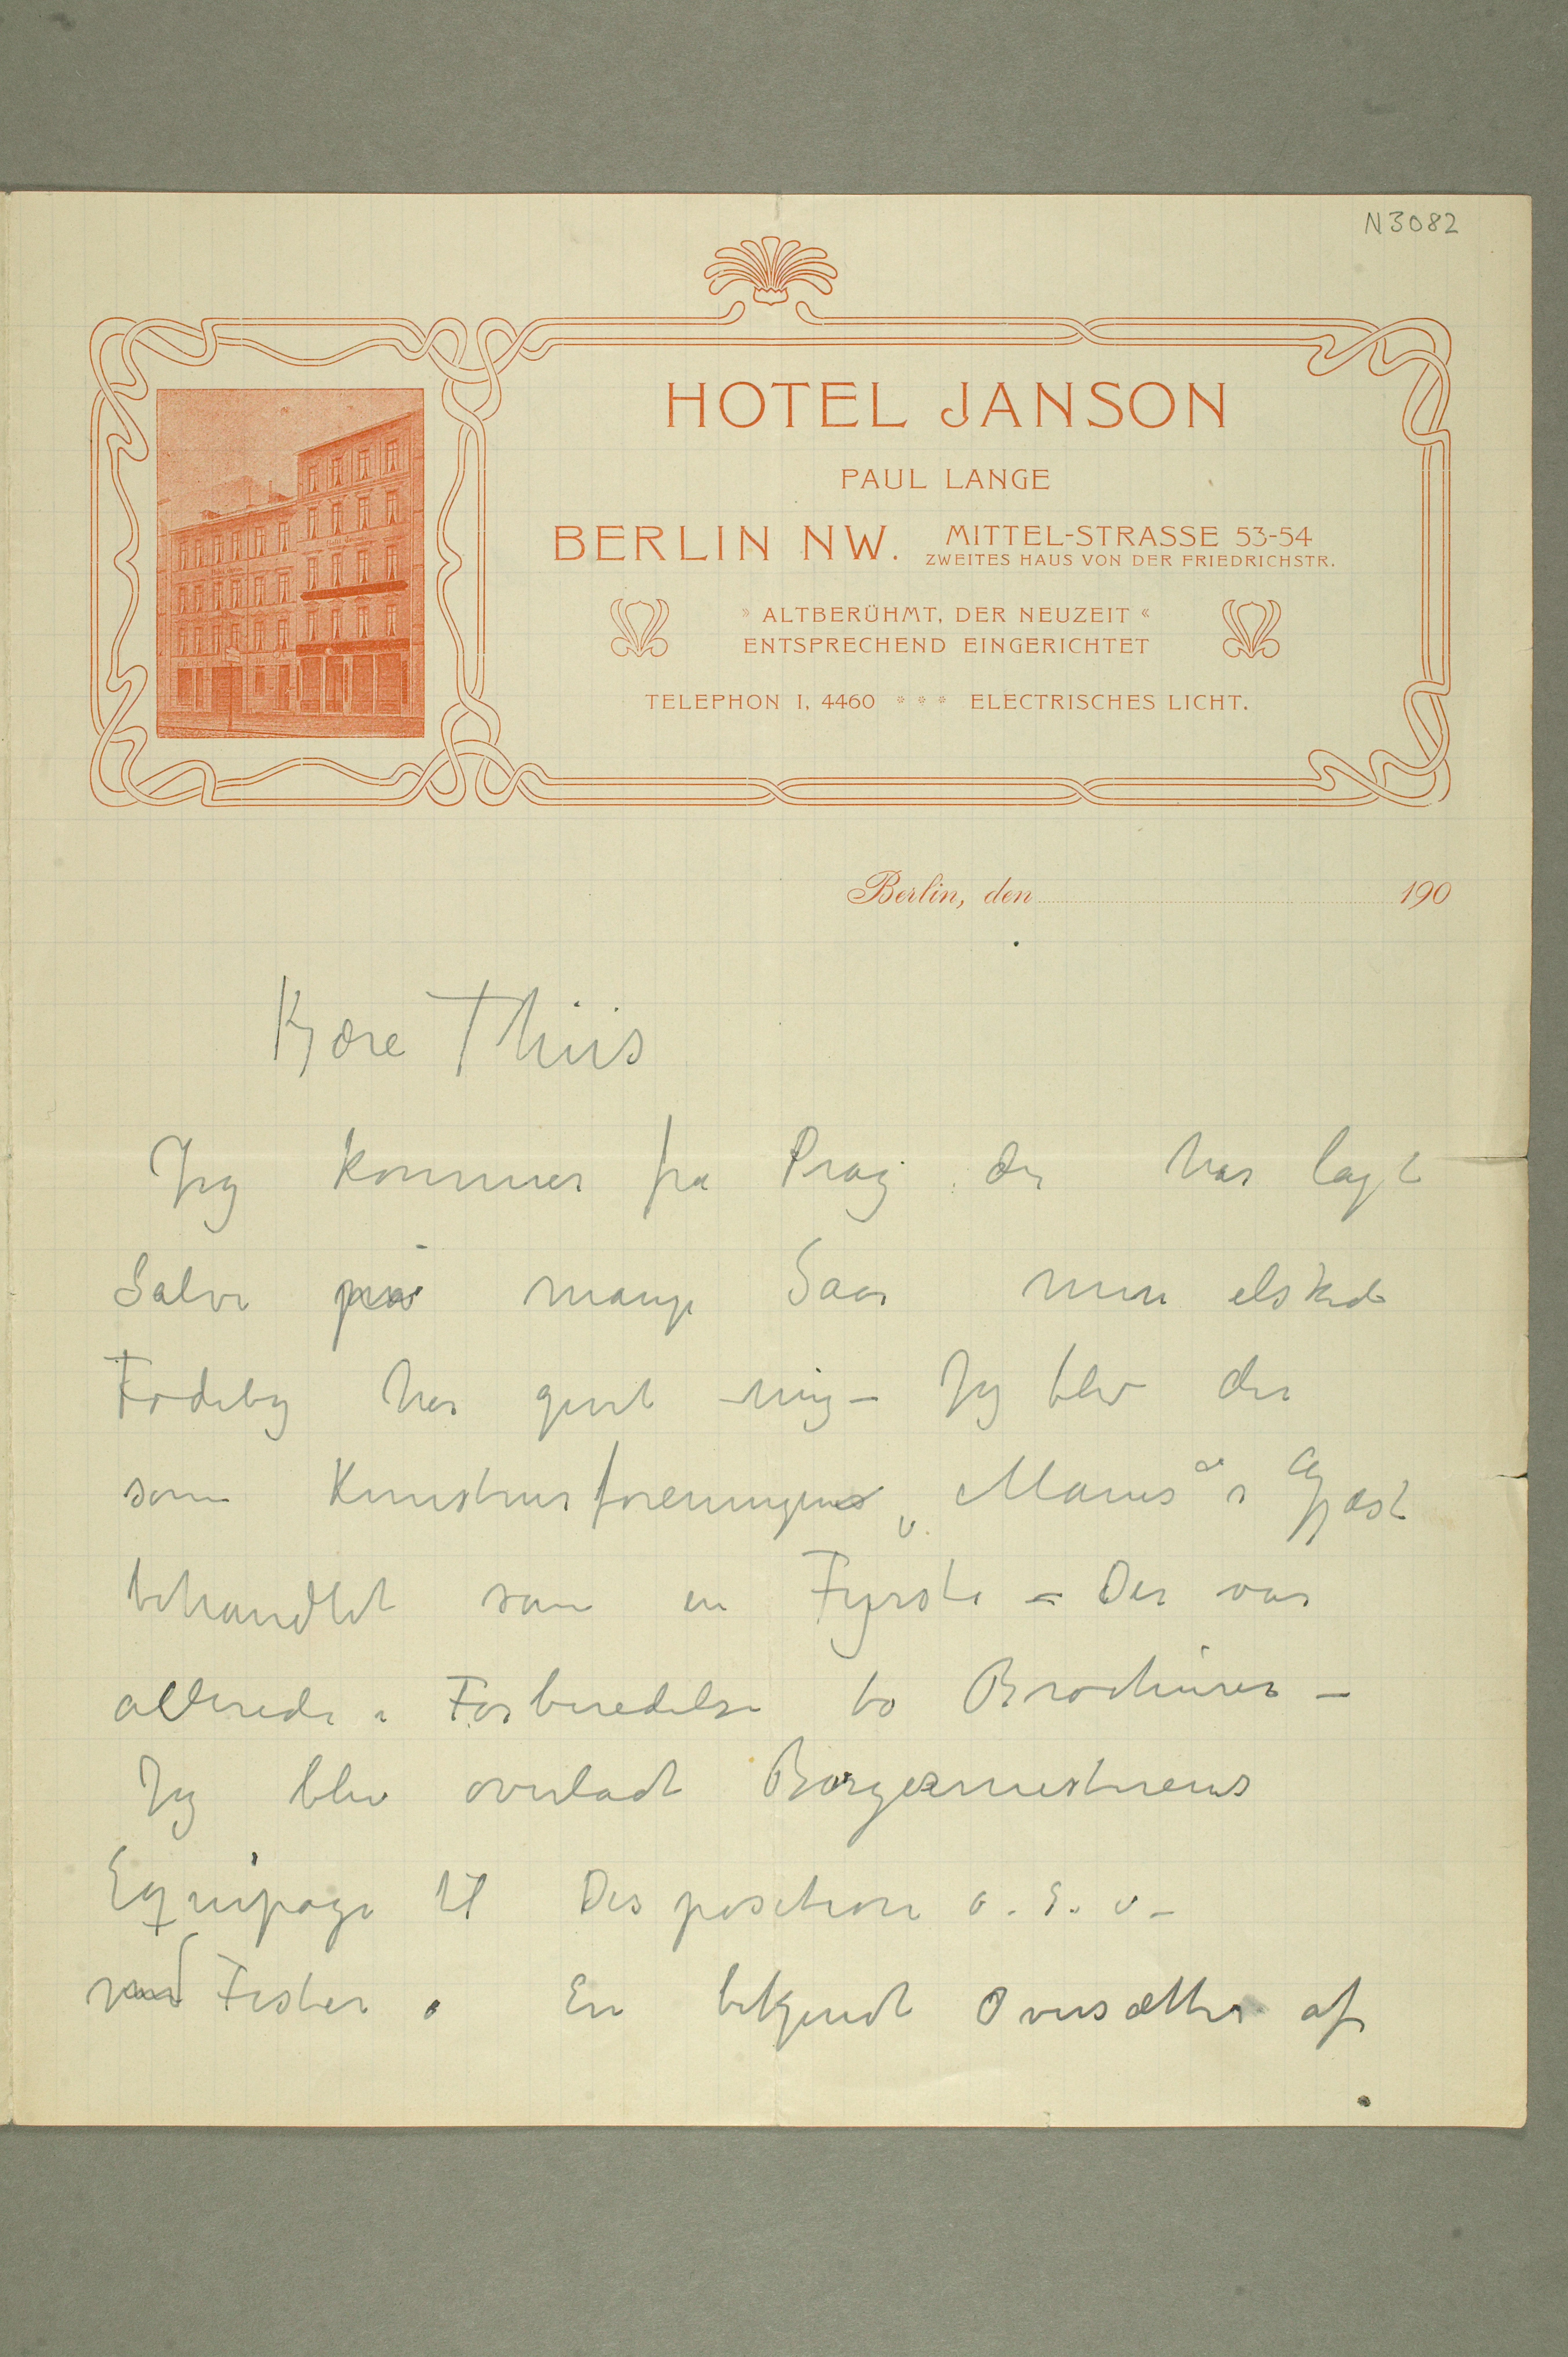 N3082
HOTEL JANSON
PAUL LANGE
BERLIN NW. MITTEL-STRASSE 53-54
ZWEITES HAUS VON DER FRIEDRICHSTR.
» ALTBERÜHMT, DER NEUZEIT «
ENTSPRECHEND EINGERICHTET
TELEPHON I, 4460 * * * ELECTRISCHES LICHT.
Berlin, den 190
Kjære Thiis
Jeg kommer fra Prag der har lagt
Salve på mange Saar min elskede
Fødeby har givet mig – Jeg blev der
som Kunstnerforeningens „Manes“s Gjæst
behandlet som en Fyrste – Der var
allerede i Forberedelse to Brochürer –
Jeg blev overladt Borgermesterens
Equipage til Disposition o. s. v –
Fester. En bekjendt Oversætter af